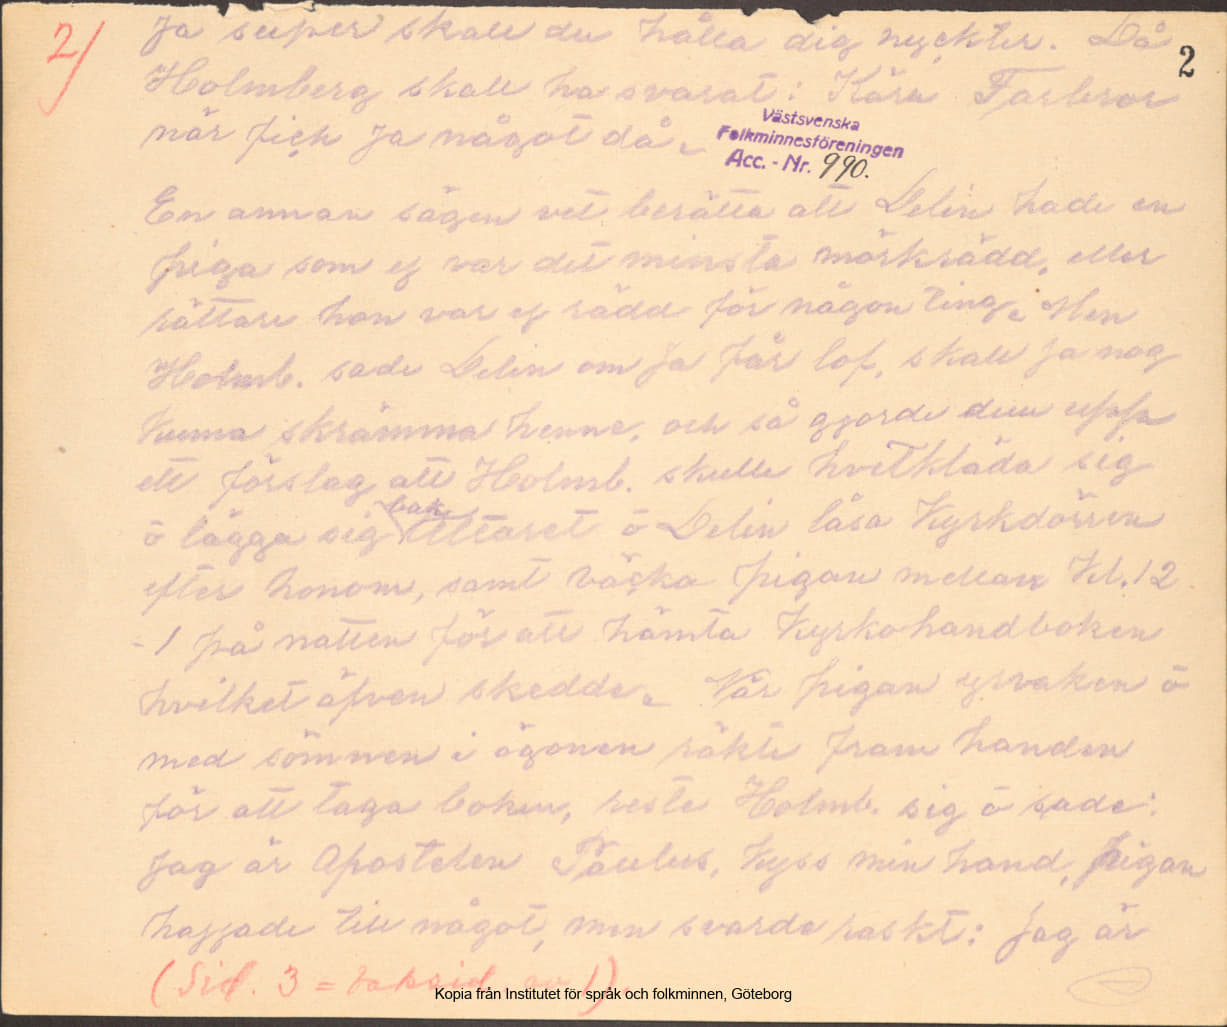 2/
ja super skall du hålla dig nyckter. Då
2
Holmberg skall ha svarat: Kära Farbror
när fick ja något då.
Västsvenska
Folkminnesföreningen
Acc. - Nr. 990.
En annan sägen vet berätta att Delin hade en
piga som ej var det minsta mörkrädd, eller
rättare hon var ej rädd för någon ting. Men
Holmb. sade Delin om ja får lof, skall ja nog
kunna skrämma henne, och så gjorde dom upp
ett förslag att Holmb. skulle hvitkläda sig
ö lägga sig bak Altaret ö Delin låsa Kyrkdörren
efter honom, samt väcka pigan mellan Kl. 12
-1 på natten för att hämta Kyrkohandboken
hvilket äfven skedde. När pigan yrvaken ö
med sömnen i ögonen räkte fram handen
för att taga boken, reste Holmb. sig ö sade:
Jag är Apostelen Paulus, Kyss min hand, pigan
hajjade till något, men svarde raskt: Jag är
(Sid. 3 = baksid. av 1).
Kopia från Institutet för språk och folkminnen, Göteborg